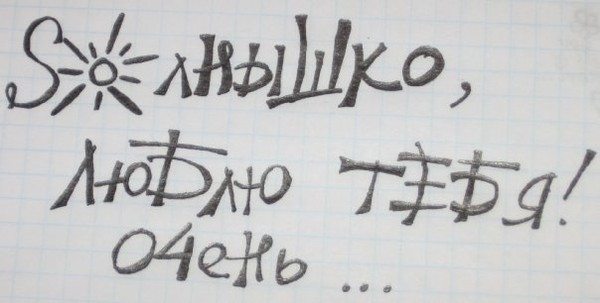 Sолнышко,
люблю тебя!
очень ...